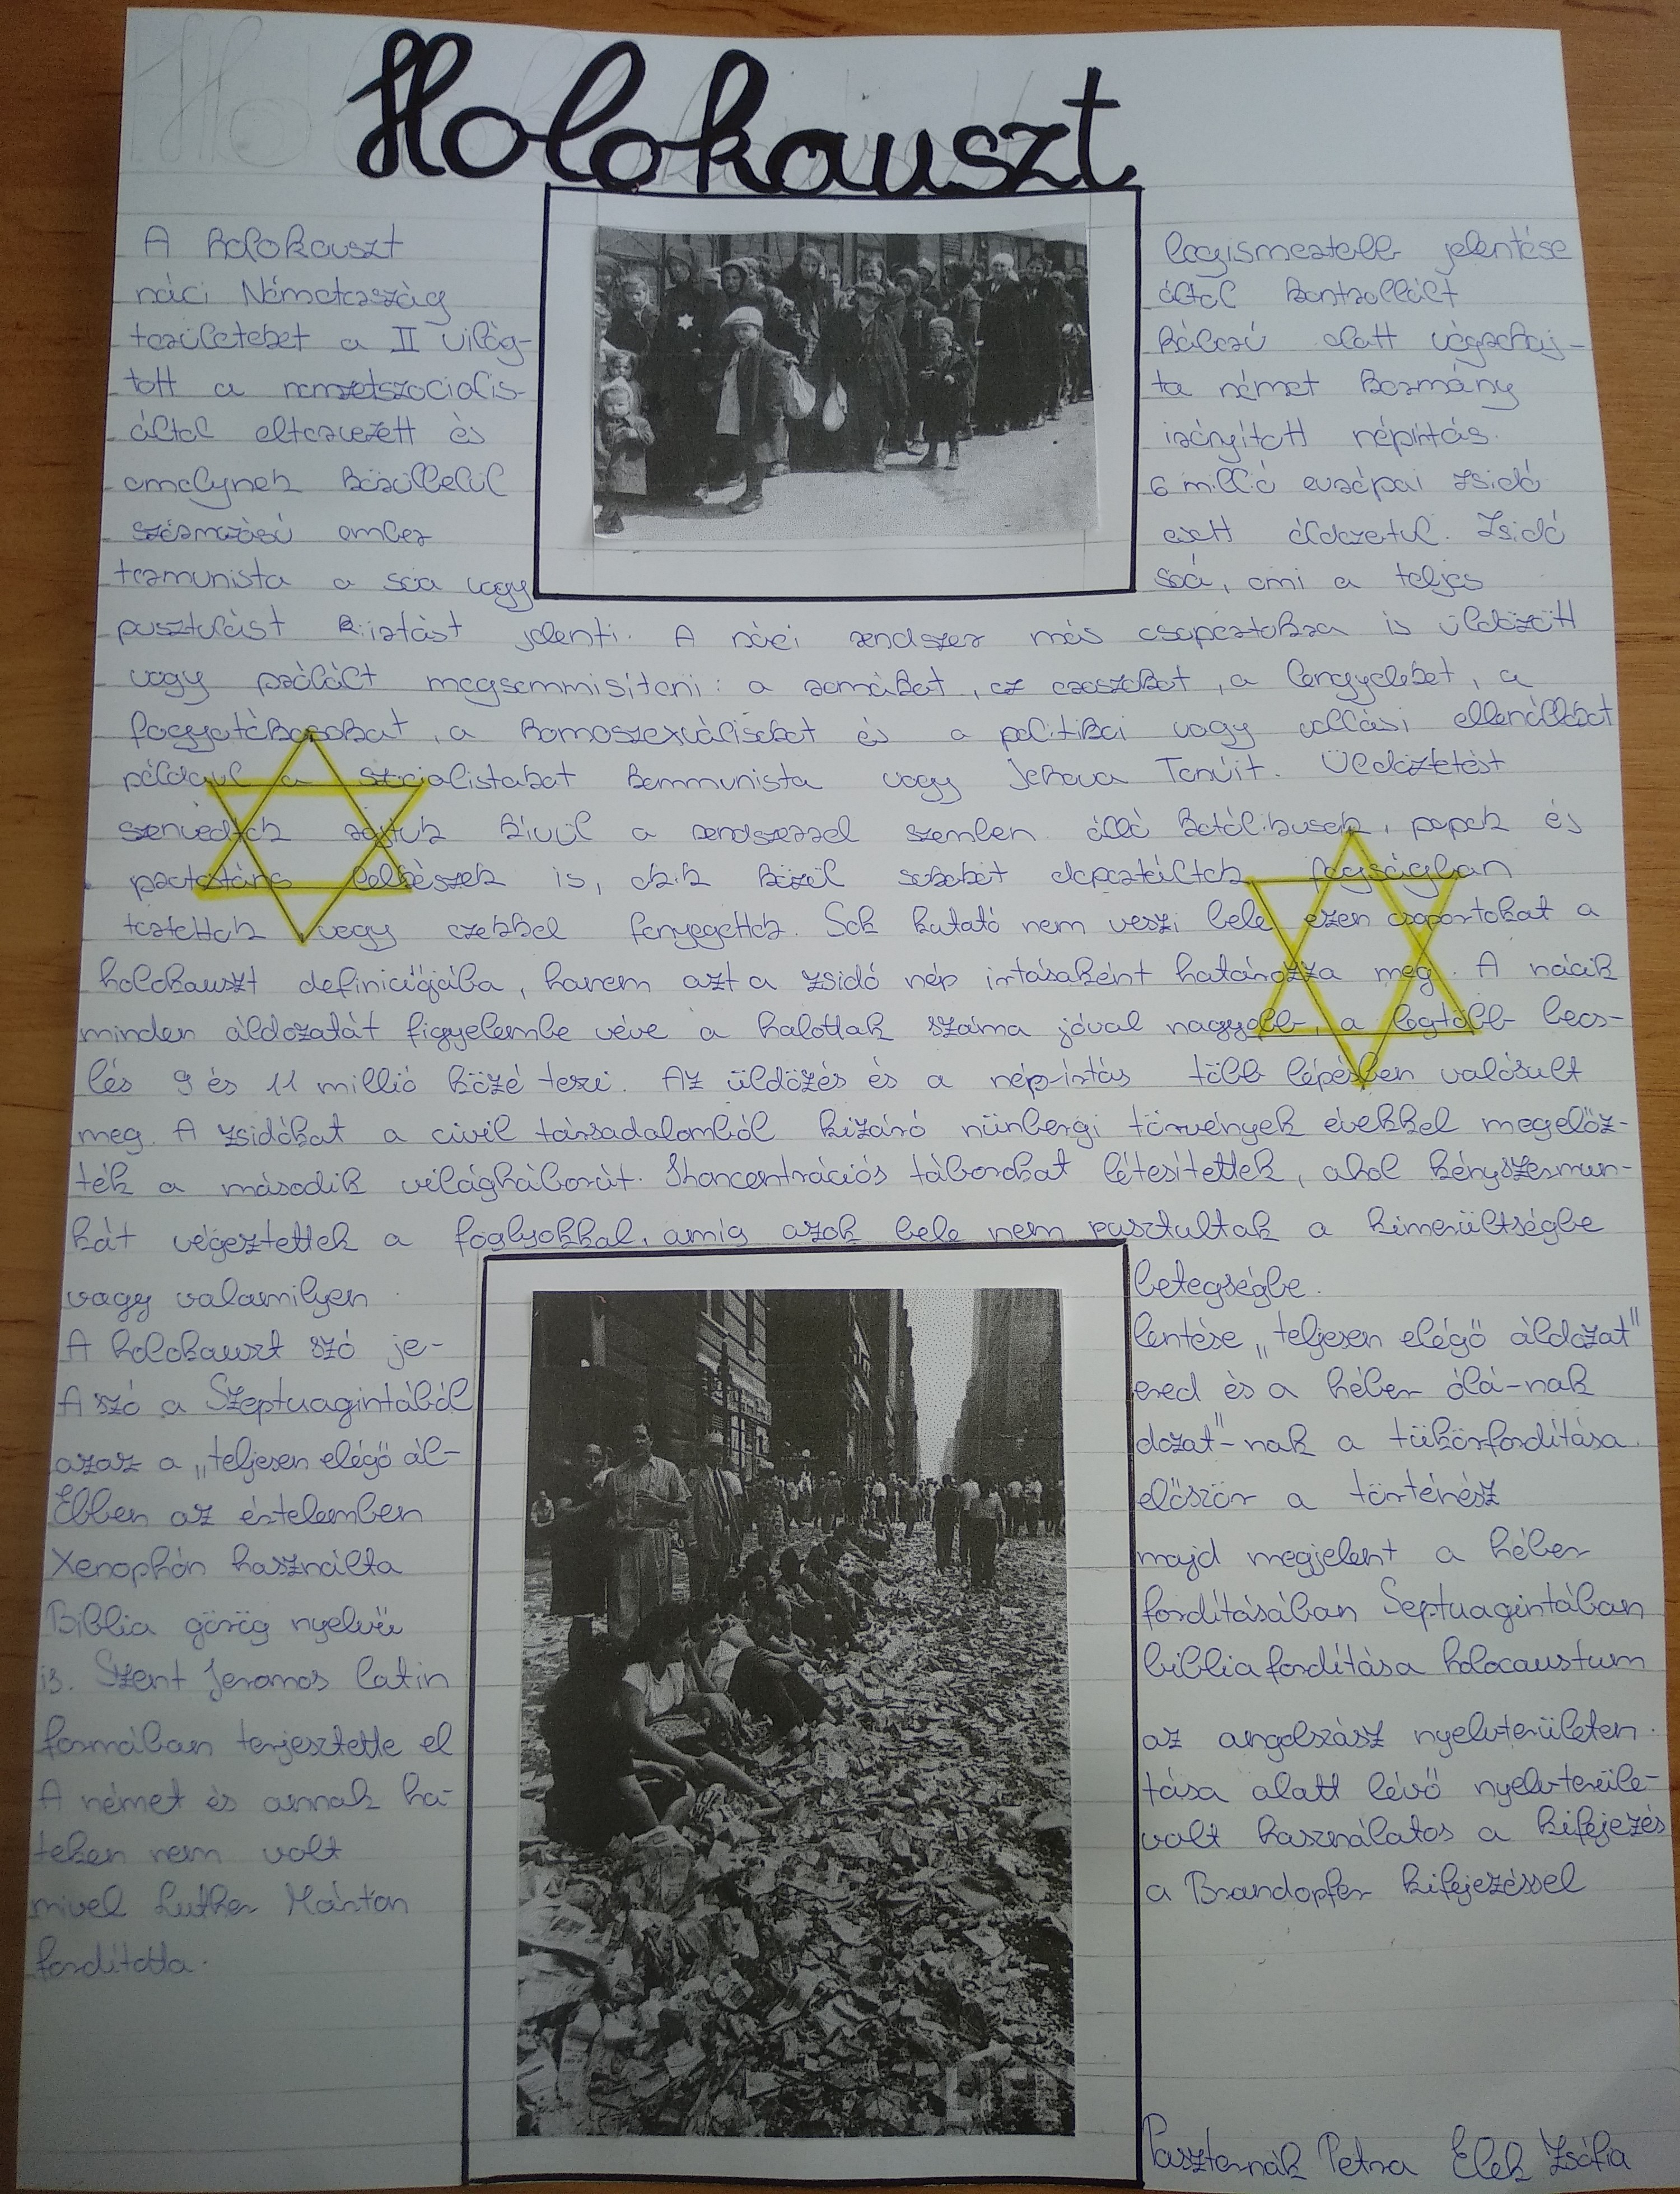 Holokauszt
A holokauszt legismertebb jelentése
náci Németország által kontrollált
területeket a II világ- háború alatt végrehaj-
tott a nemzetszocialis- ta német kormány
által eltervezett és irányított népirtás.
amelynek körülbelül 6 millió európai zsidó
származású ember esett áldozatul. Zsidó
termunista a soa vagy soá, ami a teljes
pusztulást kiirtást jelenti. A náci rendszer más csoportokra is üldözött
vagy próbált megsemmisíteni: a romákat, az oroszokat, a lengyeleket, a
fogyatékosokat, a homoszexuálisokat és a politikai vagy vallási ellenállókat
például a szocialistákat kommunista vagy Jehova Tanúit. Üldöztetést
szenvedtek rajtuk kívül a rendszerrel szemben álló katolikusok, papok és
prototáns lelkészek is, akik közül sokakat deportáltak fogságban
tartottak vagy ezekkel fenyegettek. Sok kutató nem veszi bele ezen csoportokat a
holokauszt definíciójába, hanem azt a zsidó nép irtásaként határozza meg. A nácik
minden áldozatát figyelembe véve a halottak száma jóval nagyobb, a legtöbb becs-
lés 9 és 11 millió közé teszi. Az üldözés és a nép-irtás több lépésben valósult
meg. A zsidókat a civil társadalomból kizáró nünbergi törvények évekkel megelőz-
ték a második világháborút. Koncentrációs táborokat létesítettek, ahol kényszermun-
kát végeztettek a foglyokkal, amig azok bele nem pusztultak a kimerültségbe
vagy valamilyen betegségbe.
A holokauszt szó je- lentése „teljesen elégő áldozat"
A szó a Szeptuagintából ered és a héber ólá-nak
azaz a „teljesen elégő ál- dozat"-nak a tükörfordítása.
Ebben az értelemben először a történész
Xenophón használta majd megjelent a héber
Biblia görög nyelvű fordításában Septuagintában
is. Szent Jeromos latin bibliafordítása holocaustum
formában terjesztette el az angolszász nyelvterületen.
A német és annak ha- tása alatt lévő nyelvterüle-
teken nem volt volt használatos a kifejezés
mivel Luther Márton a Brandopfer kifejezéssel
fordította.
LIFE
Paszternák Petra Elek Zsófia